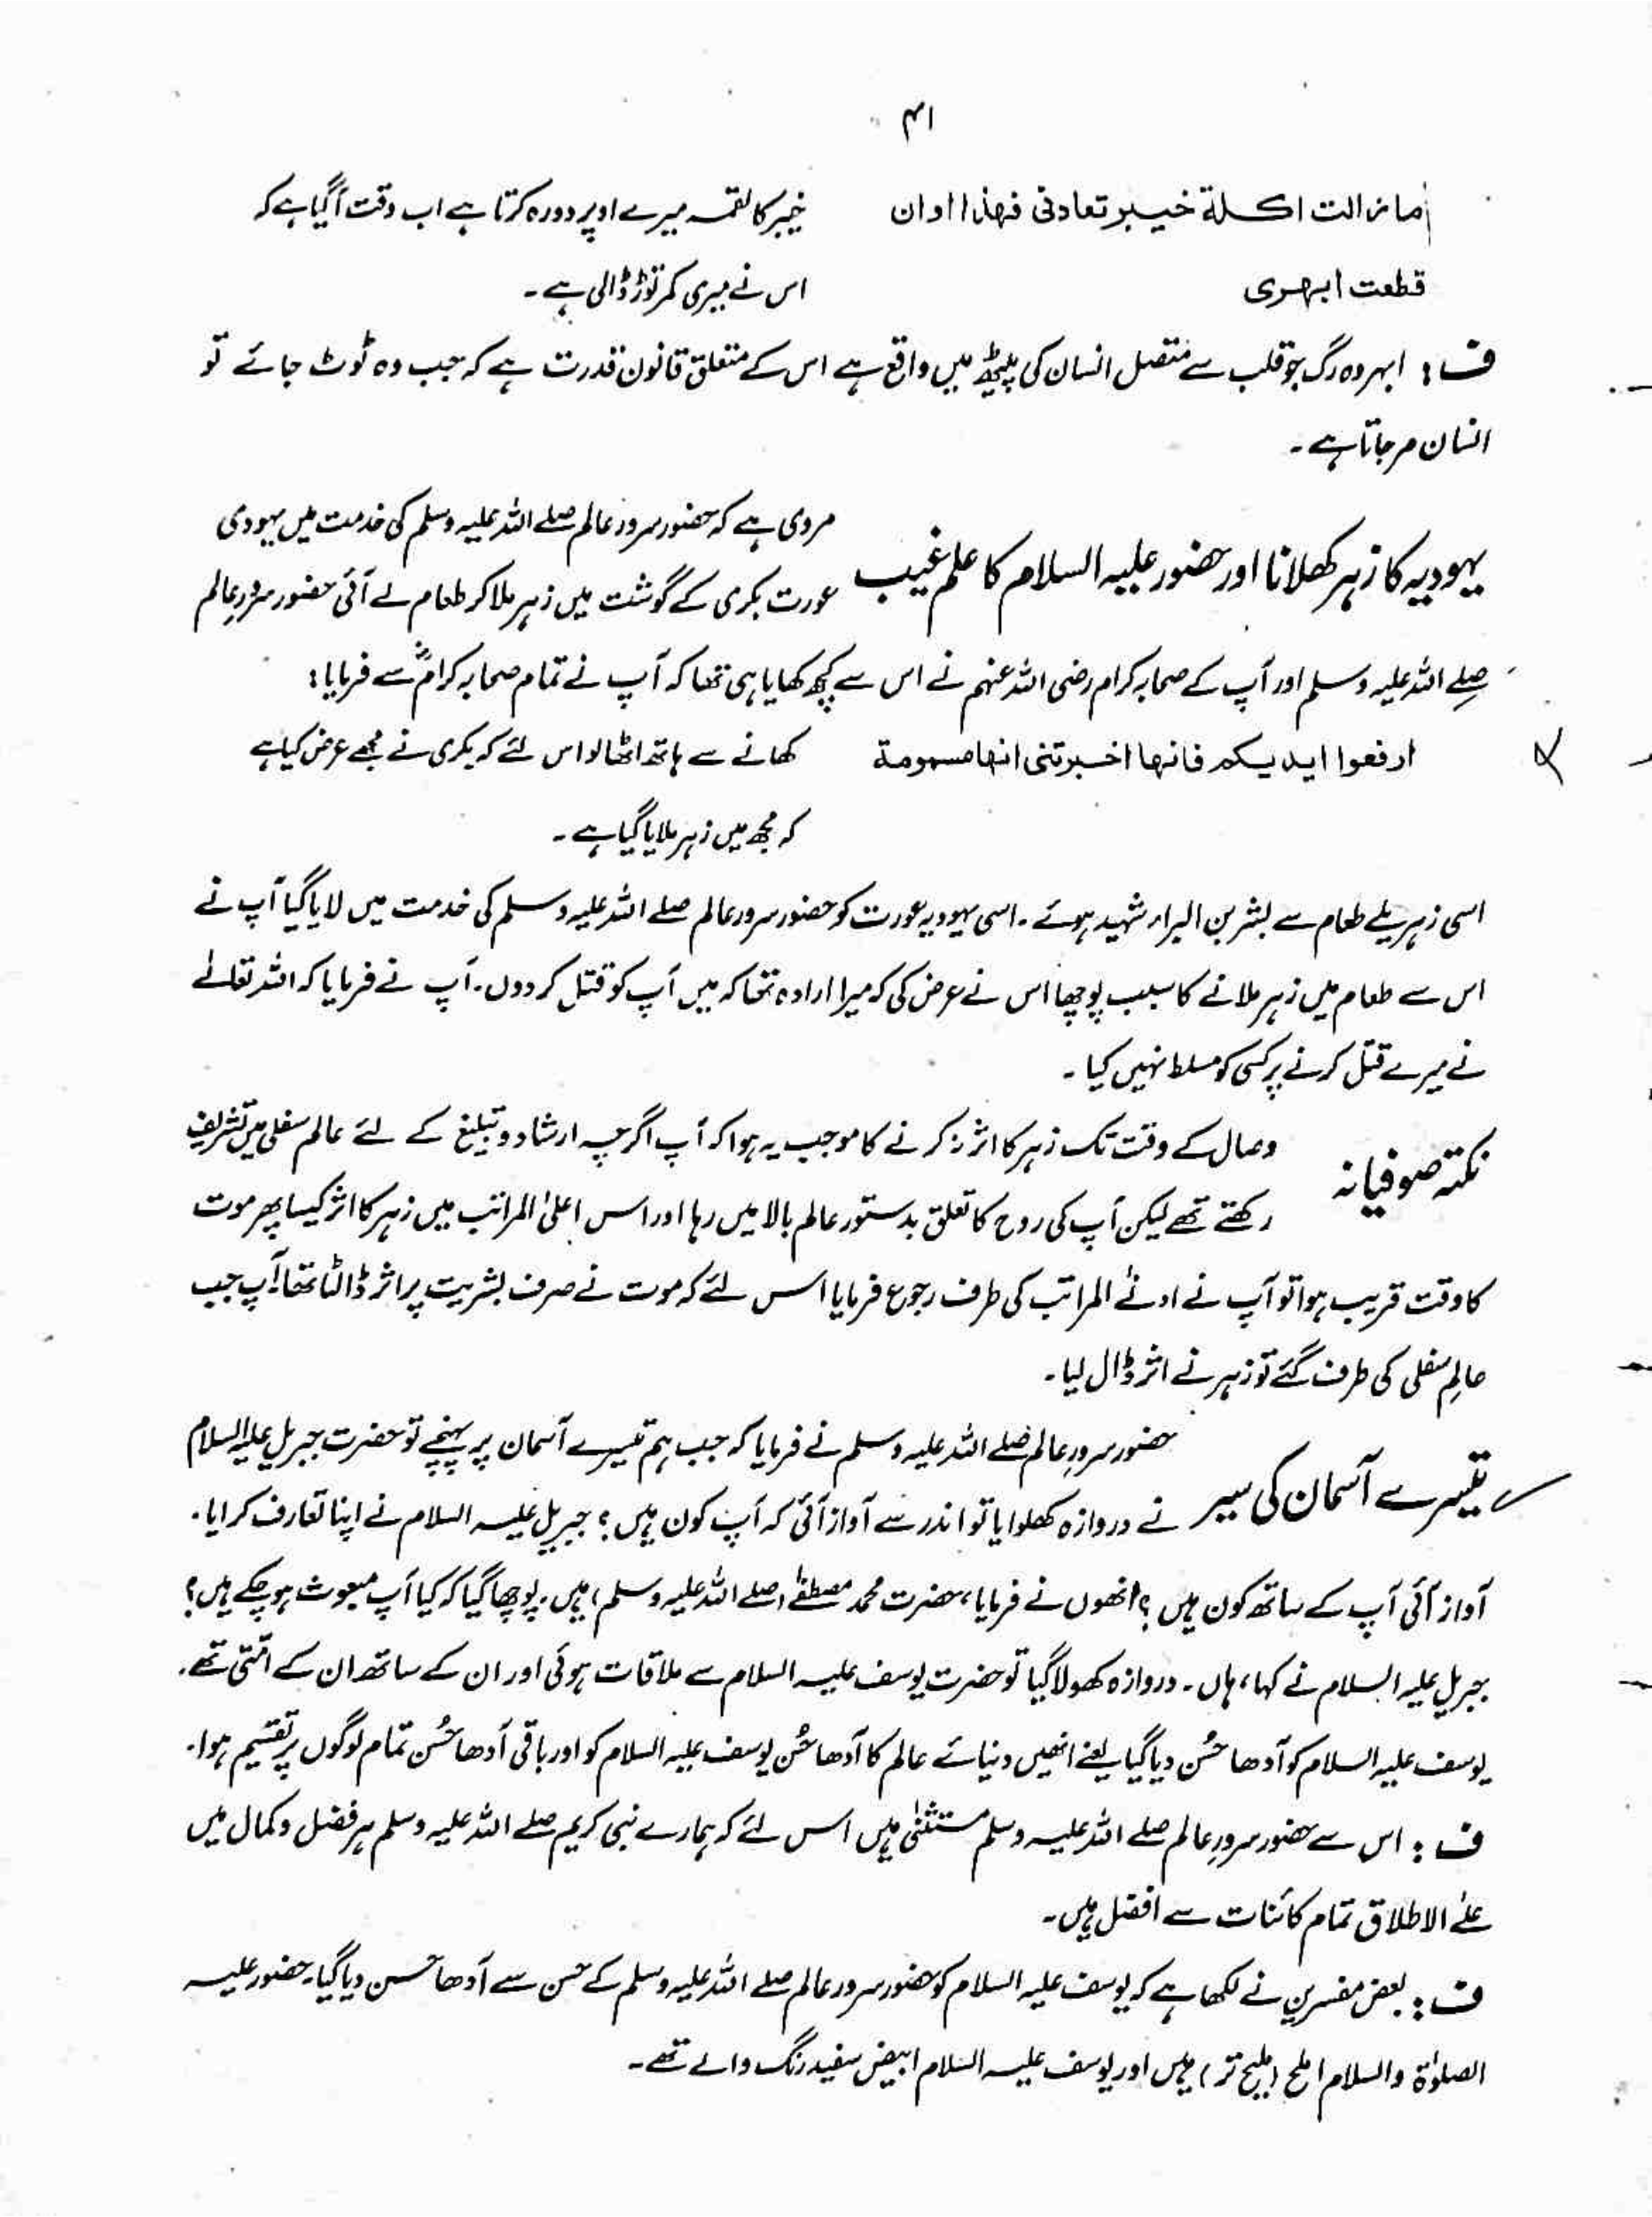 ۴۱
مازالت اكلة خيبر تعادنى فهذا اوان
خیبر کا لقمہ میرے اوپر دورہ کرتا ہے اب وقت آگیا ہے کہ
قطعت ابهرى
اس نے میری کمر توڑ ڈالی ہے۔
ف : ابہر وہ رگ جو قلب سے متصل انسان کی پیٹھ میں واقع ہے اس کے متعلق قانون قدرت ہے کہ جب وہ ٹوٹ جائے تو
انسان مرجاتا ہے۔
یہودیہ کا زہر کھلانا اور حضور علیہ السلام کا علم غیب
مروی ہے کہ حضور سرور عالم صلے اللہ علیہ وسلم کی خدمت میں یہودی
عورت بکری کے گوشت میں زہر ملا کر طعام لے آئی حضور سرورِ عالم
صلے اللہ علیہ وسلم اور آپ کے صحابہ کرام رضی اللہ عنہم نے اس سے کچھ کھایا ہی تھا کہ آپ نے تمام صحابہ کرامؓ سے فرمایا :
ارفعوا ايديكم فانها اخبرتنى انها مسمومة
کھانے سے ہاتھ اٹھالو اس لئے کہ بکری نے مجھے عرض کیا ہے
کہ مجھ میں زہر ملایا گیا ہے۔
اسی زہریلے طعام سے بشر بن البراء شہید ہوئے۔ اسی یہودیہ عورت کو حضور سرور عالم صلے اللہ علیہ وسلم کی خدمت میں لایا گیا آپ نے
اس سے طعام میں زہر ملانے کا سبب پوچھا اس نے عرض کی کہ میرا ارادہ تھا کہ میں آپ کو قتل کر دوں۔ آپ نے فرمایا کہ اللہ تعالےٰ
نے میرے قتل کرنے پر کسی کو مسلط نہیں کیا۔
نکتہ صوفیانہ
وصال کے وقت تک زہر کا اثر نہ کرنے کا موجب یہ ہوا کہ آپ اگرچہ ارشاد و تبلیغ کے لئے عالم سفلی میں تشریف
رکھتے تھے لیکن آپ کی روح کا تعلق بدستور عالم بالا میں رہا اور اس اعلیٰ المراتب میں زہر کا اثر کیسا پھر موت
کا وقت قریب ہوا تو آپ نے ادنےٰ المراتب کی طرف رجوع فرمایا اس لئے کہ موت نے صرف بشریت پر اثر ڈالنا تھا۔ آپ جب
عالمِ سفلی کی طرف گئے تو زہر نے اثر ڈال لیا۔
تیسرے آسمان کی سیر
حضور سرورِ عالم صلے اللہ علیہ وسلم نے فرمایا کہ جب ہم تیسرے آسمان پر پہنچے تو حضرت جبریل علیہ السلام
نے دروازہ کھلوایا تو اندر سے آواز آئی کہ آپ کون ہیں ؟ جبریل علیہ السلام نے اپنا تعارف کرایا۔
آواز آئی آپ کے ساتھ کون ہیں ؟ انھوں نے فرمایا، حضرت محمد مصطفےٰ (صلے اللہ علیہ وسلم) ہیں۔ پوچھا گیا کہ کیا آپ مبعوث ہوچکے ہیں؟
جبریل علیہ السلام نے کہا، ہاں۔ دروازہ کھولا گیا تو حضرت یوسف علیہ السلام سے ملاقات ہوئی اور ان کے ساتھ ان کے امّتی تھے۔
یوسف علیہ السلام کو آدھا حُسن دیا گیا یعنے انھیں دنیائے عالم کا آدھا حُسن یوسف علیہ السلام کو اور باقی آدھا حُسن تمام لوگوں پر تقسیم ہوا۔
ف : اس سے حضور سرورِ عالم صلے اللہ علیہ وسلم مستثنیٰ ہیں اس لئے کہ ہمارے نبی کریم صلے اللہ علیہ وسلم ہر فضل و کمال میں
علےٰ الاطلاق تمام کائنات سے افضل ہیں۔
ف : بعض مفسرین نے لکھا ہے کہ یوسف علیہ السلام کو حضور سرور عالم صلے اللہ علیہ وسلم کے حسن سے آدھا حسن دیا گیا۔ حضور علیہ
الصلوٰۃ والسلام املح (ملیح تر) ہیں اور یوسف علیہ السلام ابیض سفید رنگ والے تھے۔